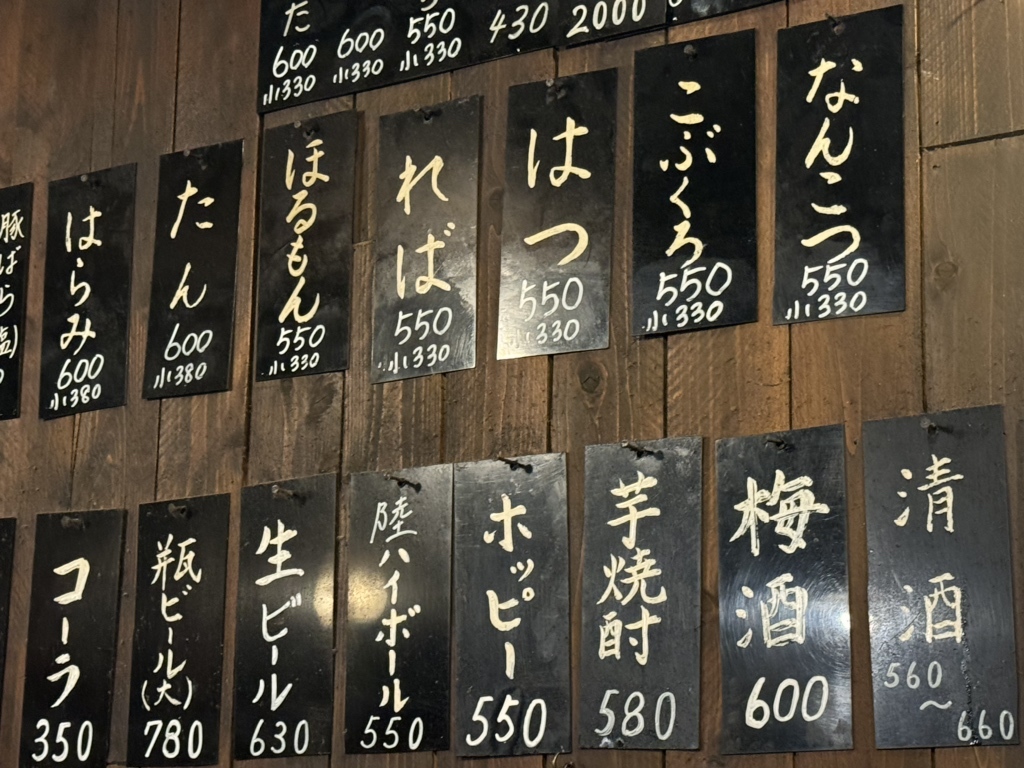 2000
430
550
小330
600
小330
た
600
小330
なんこつ
550
小330
こぶくろ
550
小330
はつ
550
小330
ればば
550
小330
ほるもん
550
小330
たん
600
小380
はらみ
600
小380
豚ばら
塩)
清酒
560
～
660
梅酒
600
芋焼酎
580
ホッピー
550
陸ハイボール
550
生ビール
630
瓶ビール
(大)
780
コーラ
350